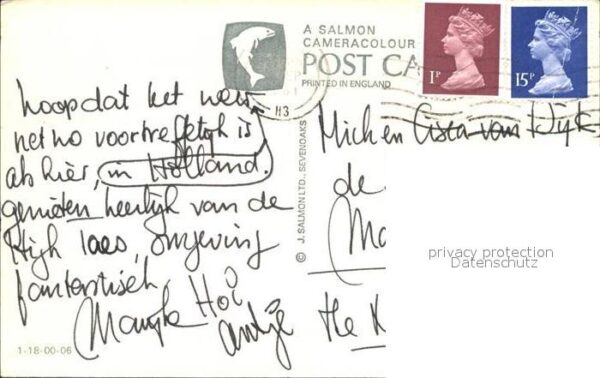 A SALMON
CAMERACOLOUR
POST CA
PRINTED IN ENGLAND
1P
15P
H3
© J. SALMON LTD., SEVENOAKS
hoop dat het weer
net zo voortreffelijk is
als hier, in Holland.
genieten heerlijk van de
High omgeving
fantastisch.
Hoi
antje
1-18-00-06
Mich en van Dijk
de
Ma
the
privacy protection
Datenschutz